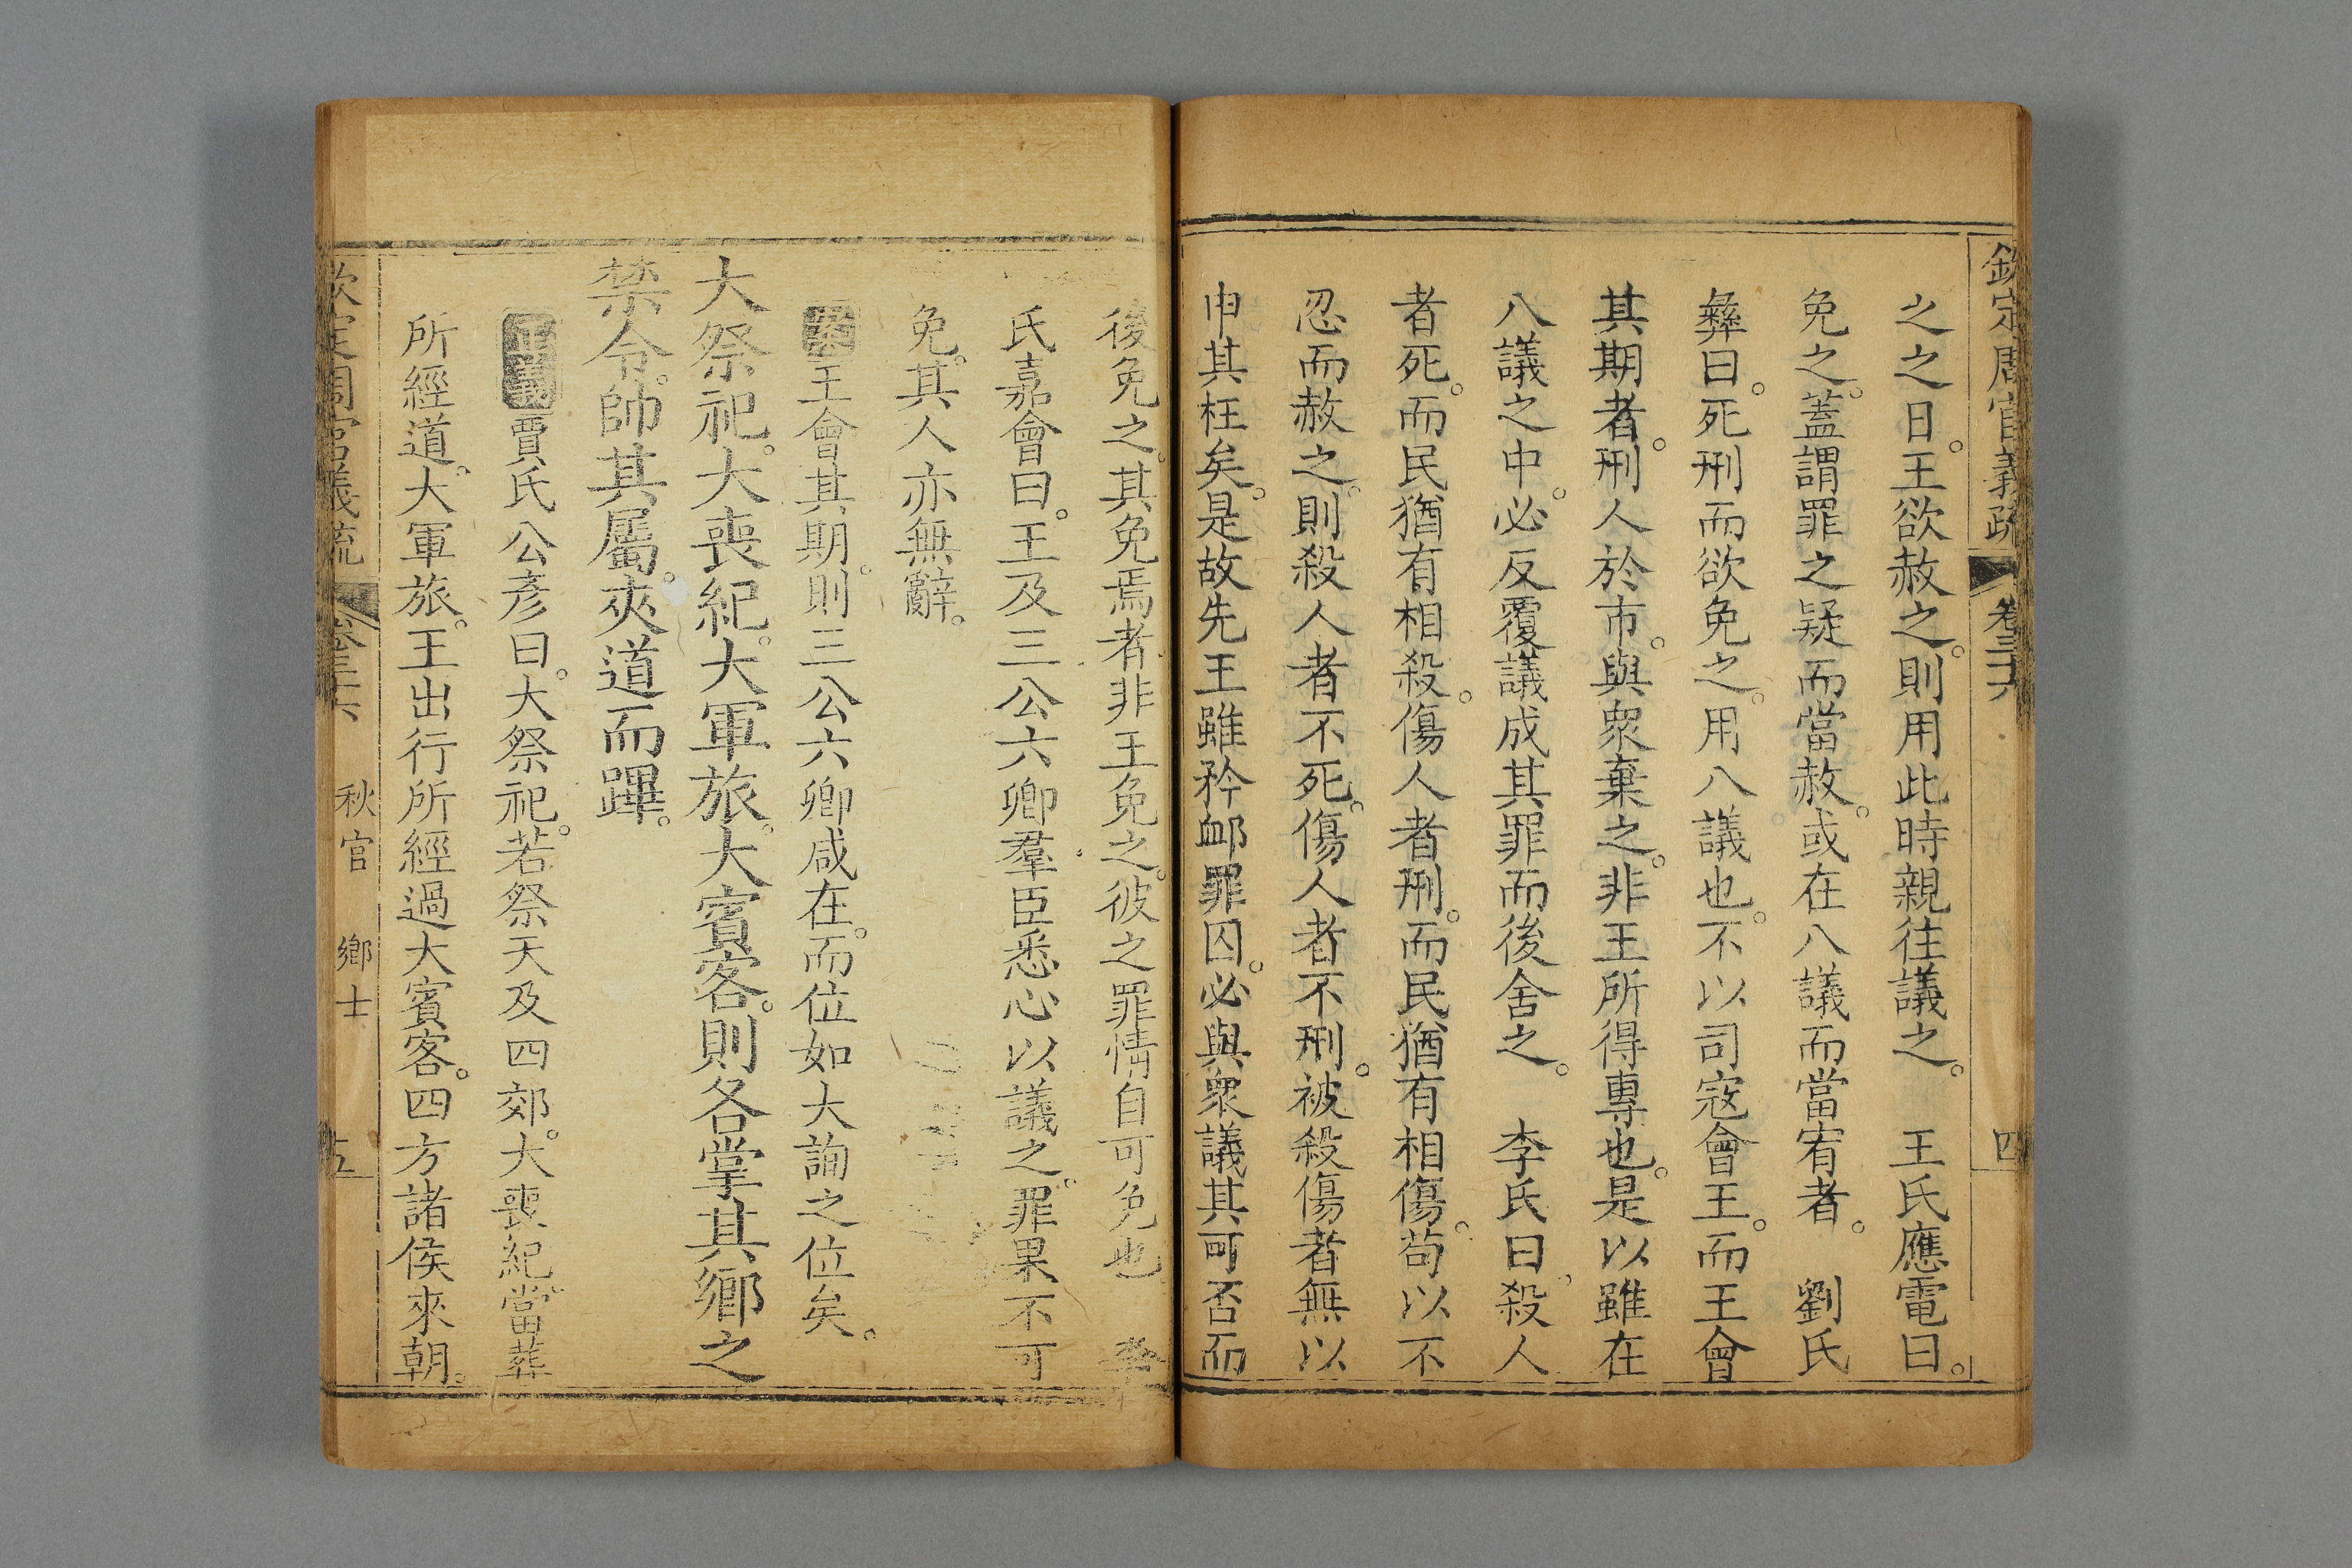 欽定周官義疏 卷三十六 四
之之日。王欲赦之。則用此時親往議之。 王氏應電曰。
免之。蓋謂罪之疑而當赦。或在八議而當宥者。 劉氏
彝曰。死刑而欲免之。用八議也。不以司寇會王。而王會
其期者。刑人於市。與衆棄之。非王所得專也。是以雖在
八議之中。必反覆議成其罪而後舍之。 李氏曰。殺人
者死。而民猶有相殺。傷人者刑。而民猶有相傷。苟以不
忍而赦之。則殺人者不死。傷人者不刑。被殺傷者無以
申其枉矣。是故先王雖矜䘏罪囚。必與衆議其可否而
後免之。其免焉者。非王免之。彼之罪情自可免也 李
氏嘉會曰。王及三公六卿羣臣悉心以議之。罪果不可
免。其人亦無辭。
案王會其期。則三公六卿咸在。而位如大詢之位矣。
大祭祀。大喪紀。大軍旅。大賓客。則各掌其鄉之
禁令。帥其屬。夾道而蹕。
正義賈氏公彥曰。大祭祀。若祭天及四郊。大喪紀。當葬
所經道。大軍旅。王出行所經過大賓客。四方諸侯來朝。
欽定周官義疏 卷三十六 秋官 鄉士 五